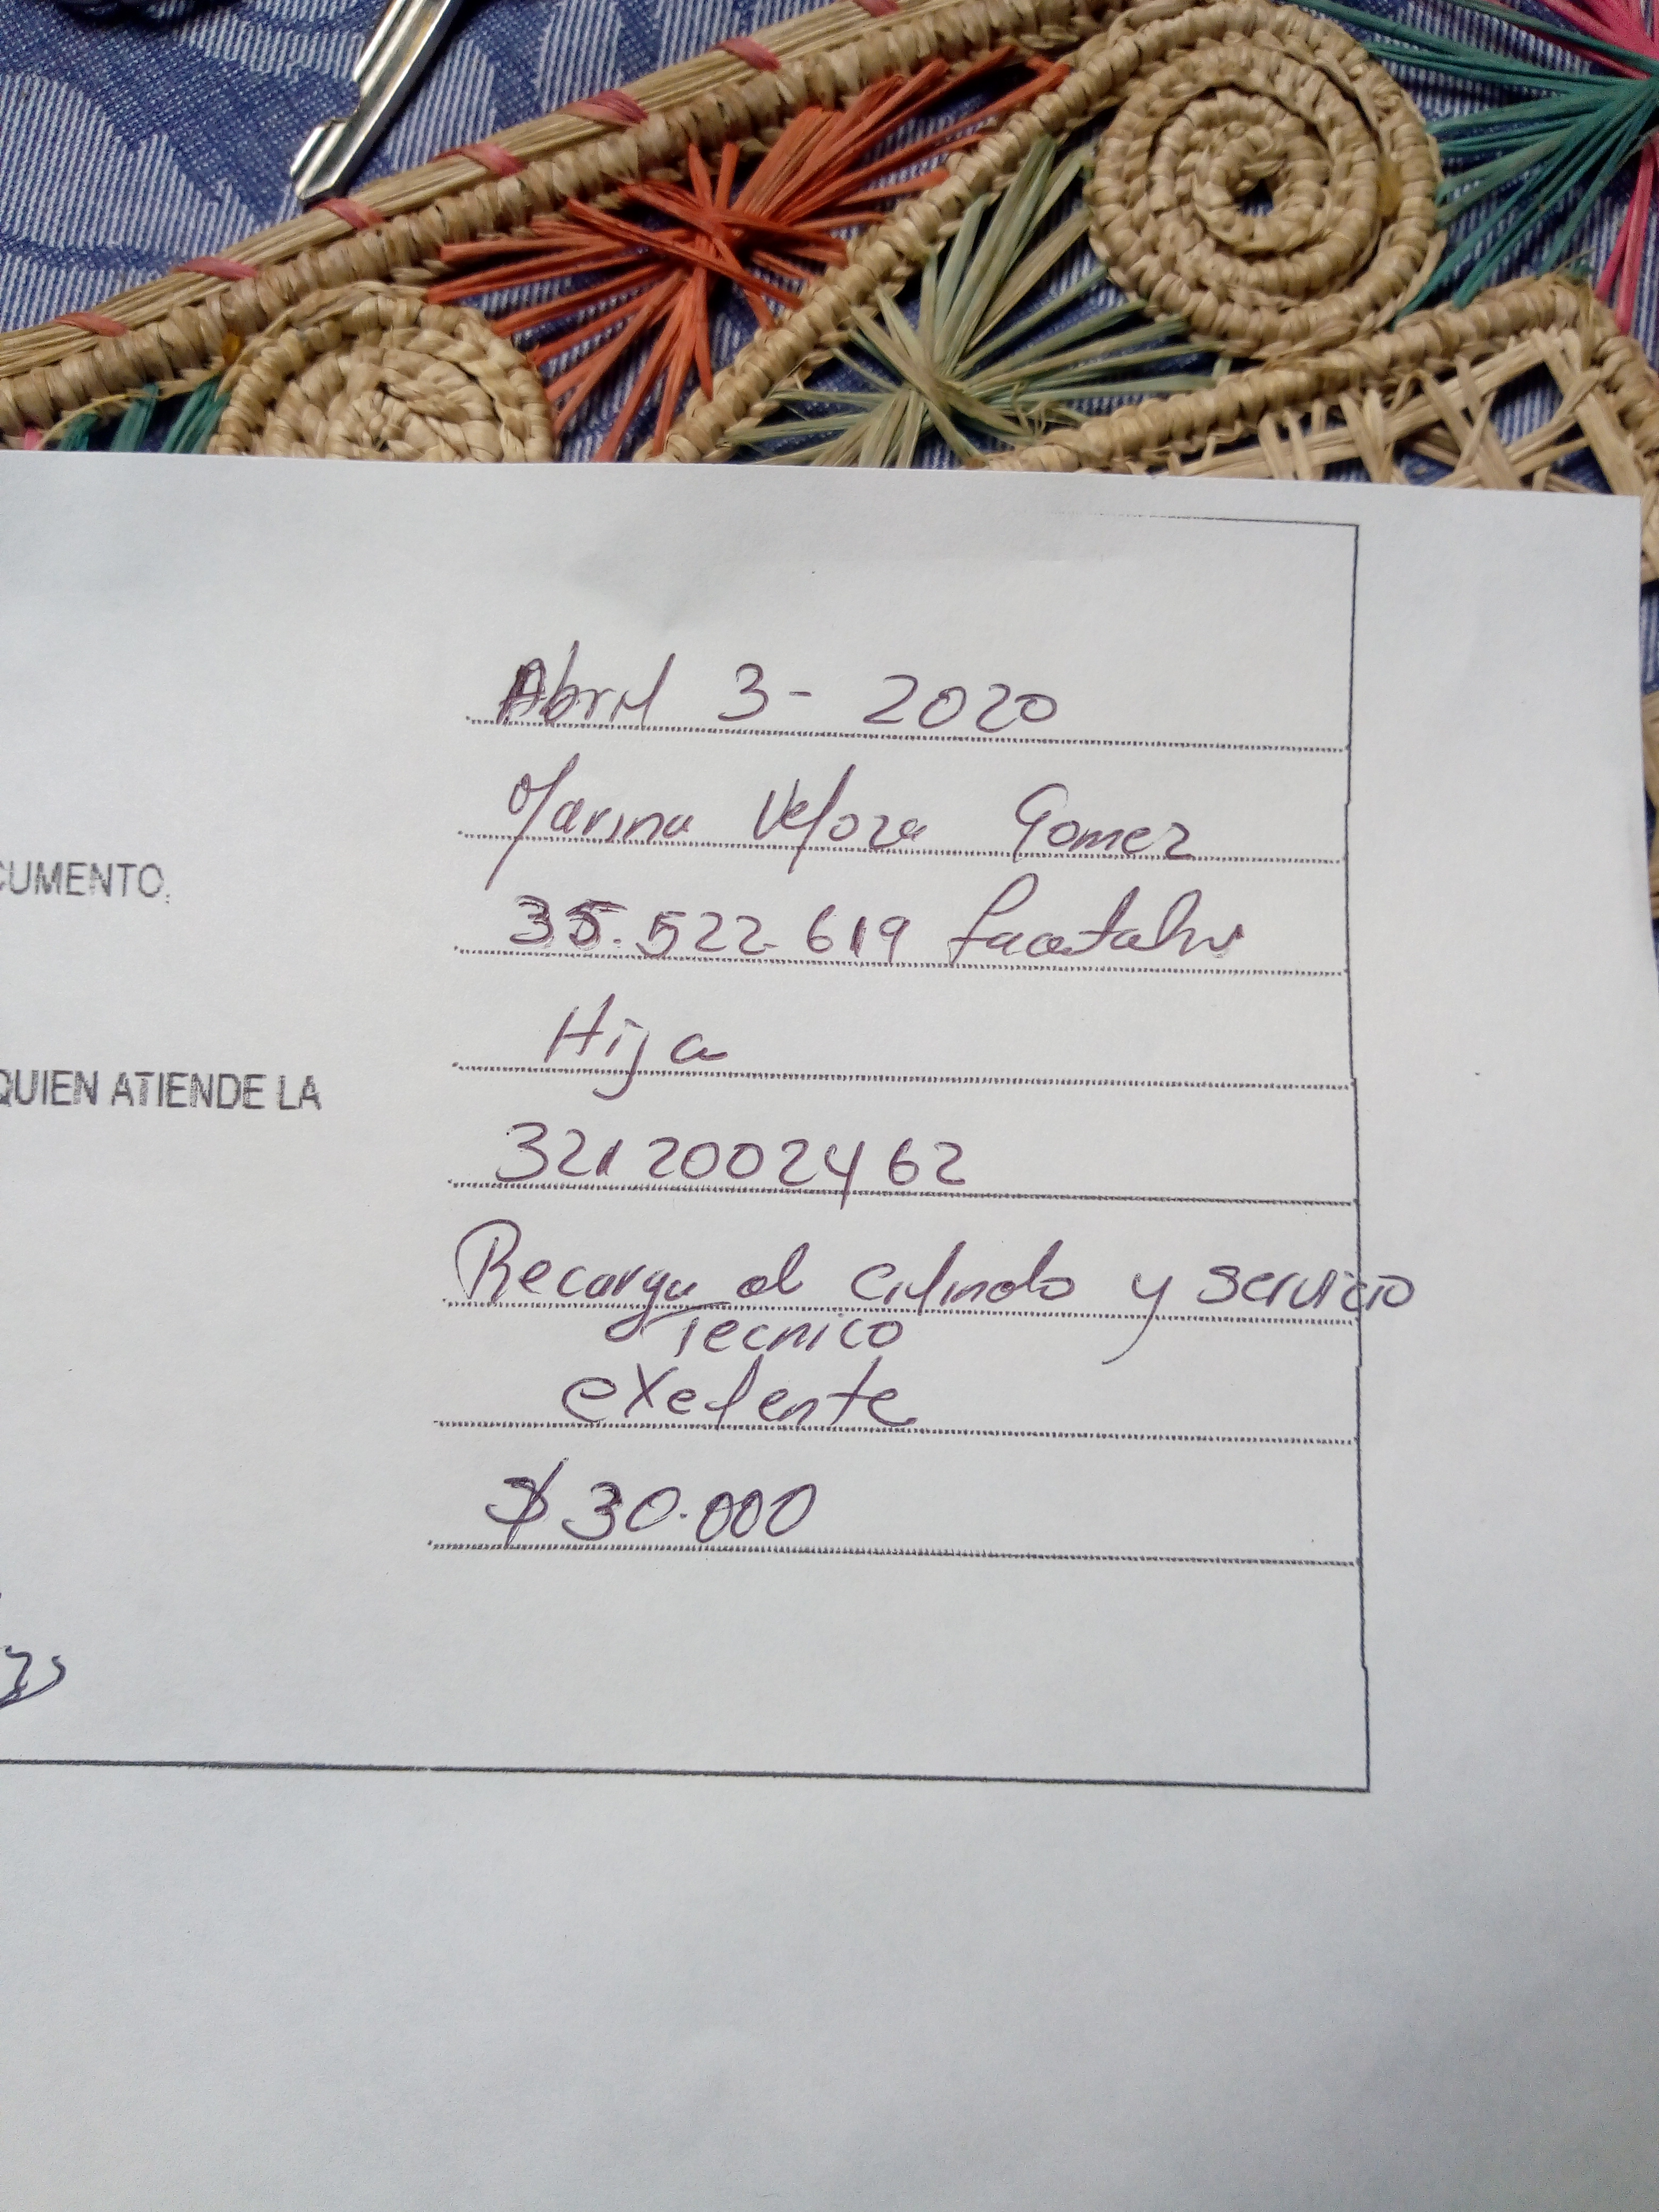 Abril 3 - 2020
Marina Veloza Gomez
CUMENTO.
35.522.619
Hija
QUIEN ATIENDE LA
3212002462
Recarga al cilindo y servicio
Tecnico
exelente
$ 30.000